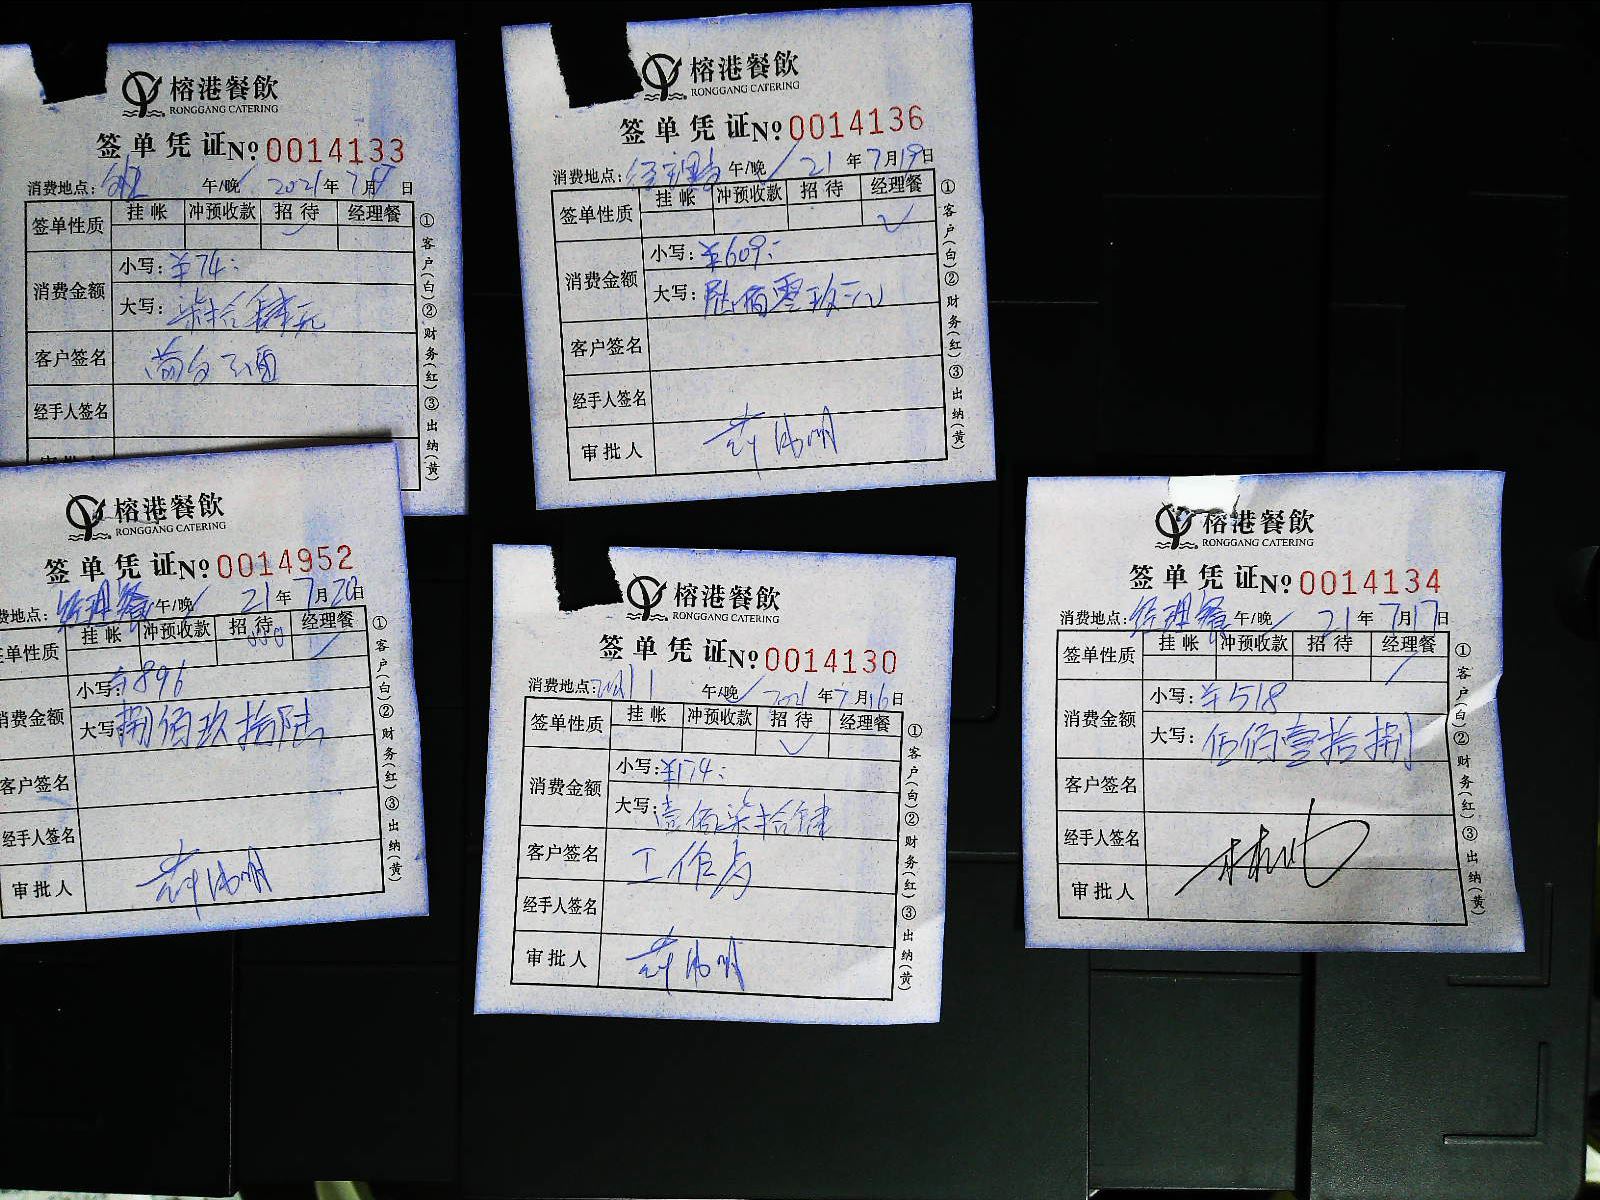 榕港餐飲
RONGGANG CATERING
签单凭证 No 0014133
消费地点: 午/晚 2021年7月 日
签单性质 挂帐 冲预收款 招待 经理餐
消费金额 小写: ¥74:
大写: 柒拾肆元
客户签名
经手人签名
①客户(白)②财务(红)③出纳(黄)
榕港餐飲
RONGGANG CATERING
签单凭证 No 0014136
消费地点: 经理餐 午/晚 21年7月19日
签单性质 挂帐 冲预收款 招待 经理餐
消费金额 小写: ¥609:
大写: 陆佰零玖元
客户签名
经手人签名
审批人
①客户(白)②财务(红)③出纳(黄)
榕港餐飲
RONGGANG CATERING
签单凭证 No 0014952
费地点: 经理餐 午/晚 21年7月20日
单性质 挂帐 冲预收款 招待 经理餐
消费金额 小写: ¥896
大写: 捌佰玖拾陆
客户签名
经手人签名
审批人
①客户(白)②财务(红)③出纳(黄)
榕港餐飲
RONGGANG CATERING
签单凭证 No 0014130
消费地点: 午/晚 2021年7月16日
签单性质 挂帐 冲预收款 招待 经理餐
消费金额 小写: ¥174:
大写: 壹佰柒拾肆
客户签名 工作
经手人签名
审批人
①客户(白)②财务(红)③出纳(黄)
榕港餐飲
RONGGANG CATERING
签单凭证 No 0014134
消费地点: 经理餐 午/晚 21年7月17日
签单性质 挂帐 冲预收款 招待 经理餐
消费金额 小写: ¥518
大写: 伍佰壹拾捌
客户签名
经手人签名
审批人
①客户(白)②财务(红)③出纳(黄)